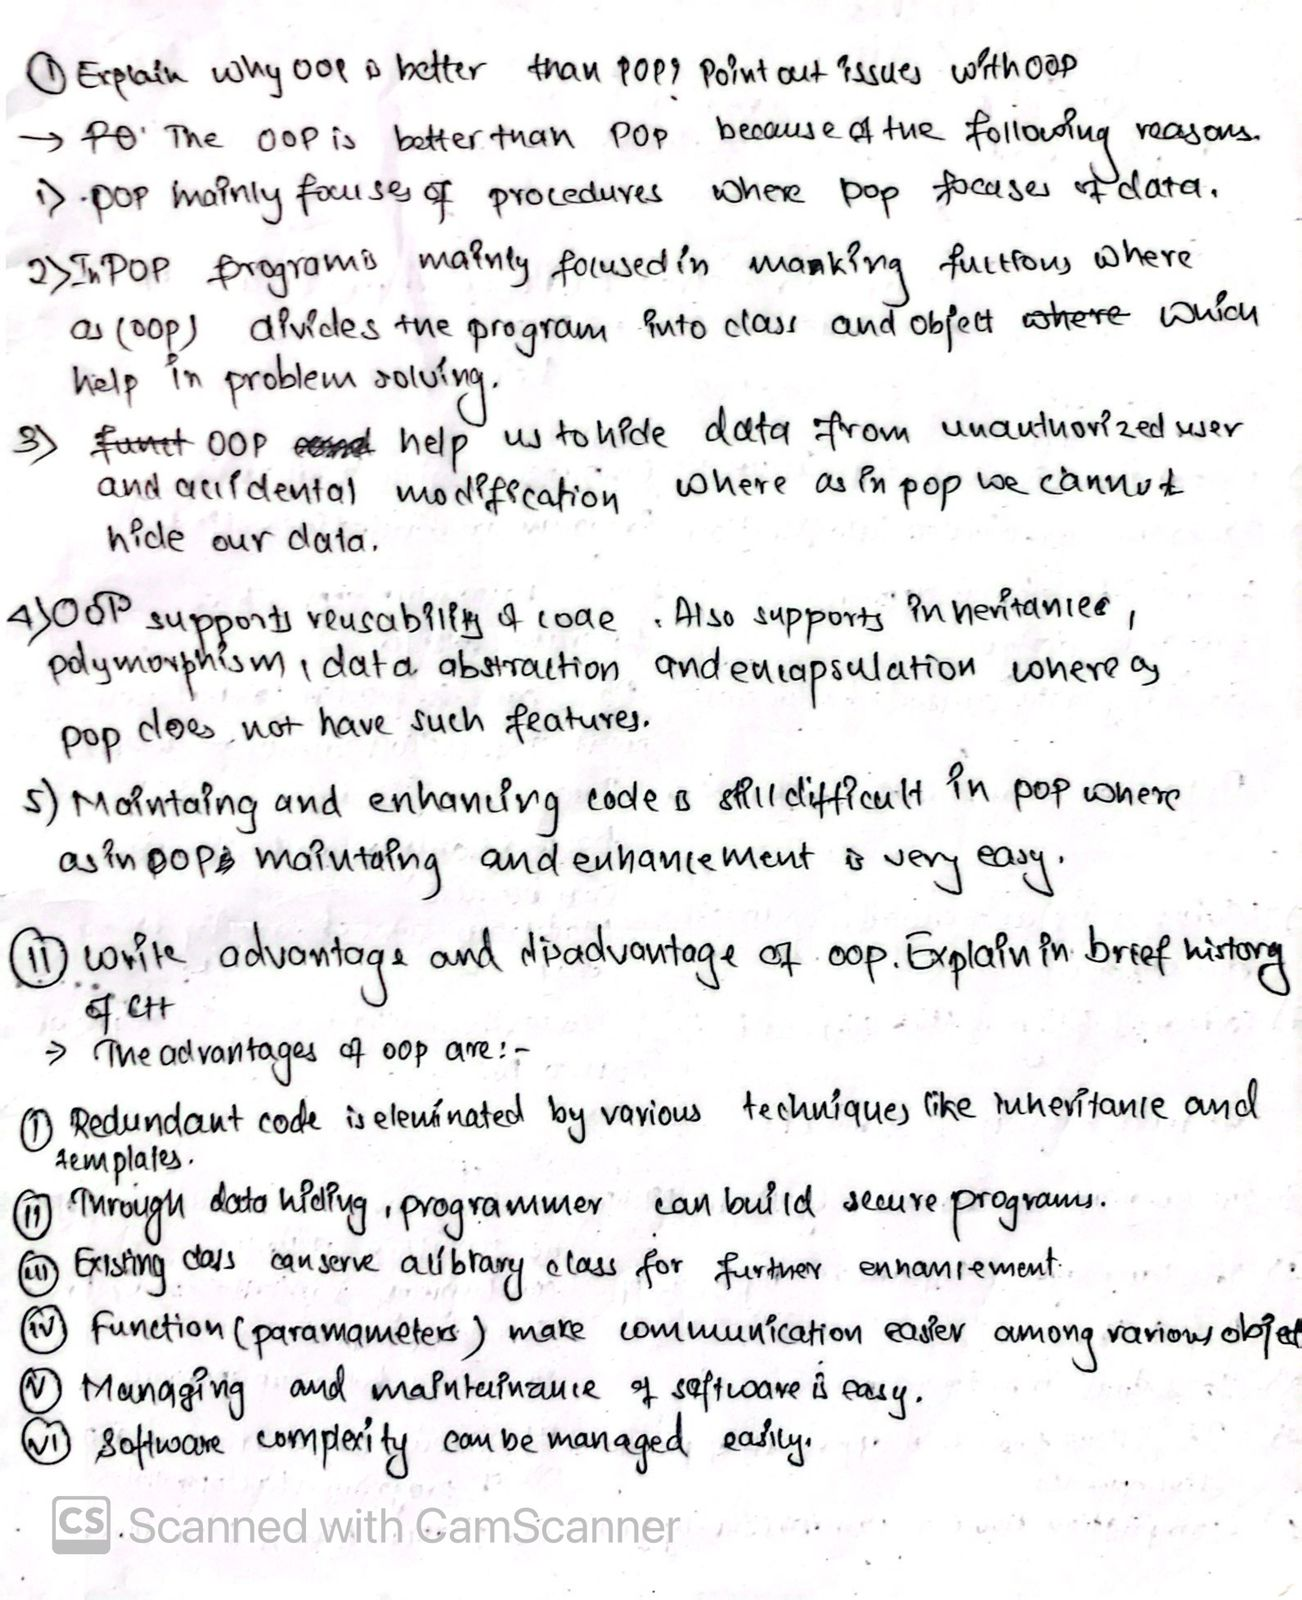 ① Explain why OOP is better than POP? Point out issues with OOP
→ PO. The OOP is better than POP because of the following reasons.
i) POP mainly focuses of procedures where pop focases of data.
2) In POP program is mainly focused in manking fuctions where
as (OOP) divides the program into class and object where which
help in problem solving.
3) funct OOP help us to hide data from unauthorized user
and accidental modification where as in pop we cannot
hide our data.
4) OOP supports reusability of code. Also supports inheritance,
polymorphism, data abstraction and encapsulation where as
pop does not have such features.
5) Maintaing and enhancing code is still difficult in pop where
as in OOPs maintaing and enhancement is very easy.
ⓘⓘ Write advantage and disadvantage of oop. Explain in brief history
of C++
→ The advantages of oop are:-
ⓘ Redundant code is eleminated by various techniques like inheritance and
templates.
ⓘⓘ Through data hiding, programmer can build secure programs.
ⓘⓘⓘ Existing class can serve a library class for further enhancement.
ⓘⓥ Function (paramameters) make communication easier among various object
ⓥ Managing and maintainance of software is easy.
ⓥⓘ Software complexity can be managed easily.
CS Scanned with CamScanner